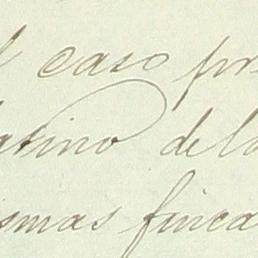 l caso pr
atino de la
ismas finca